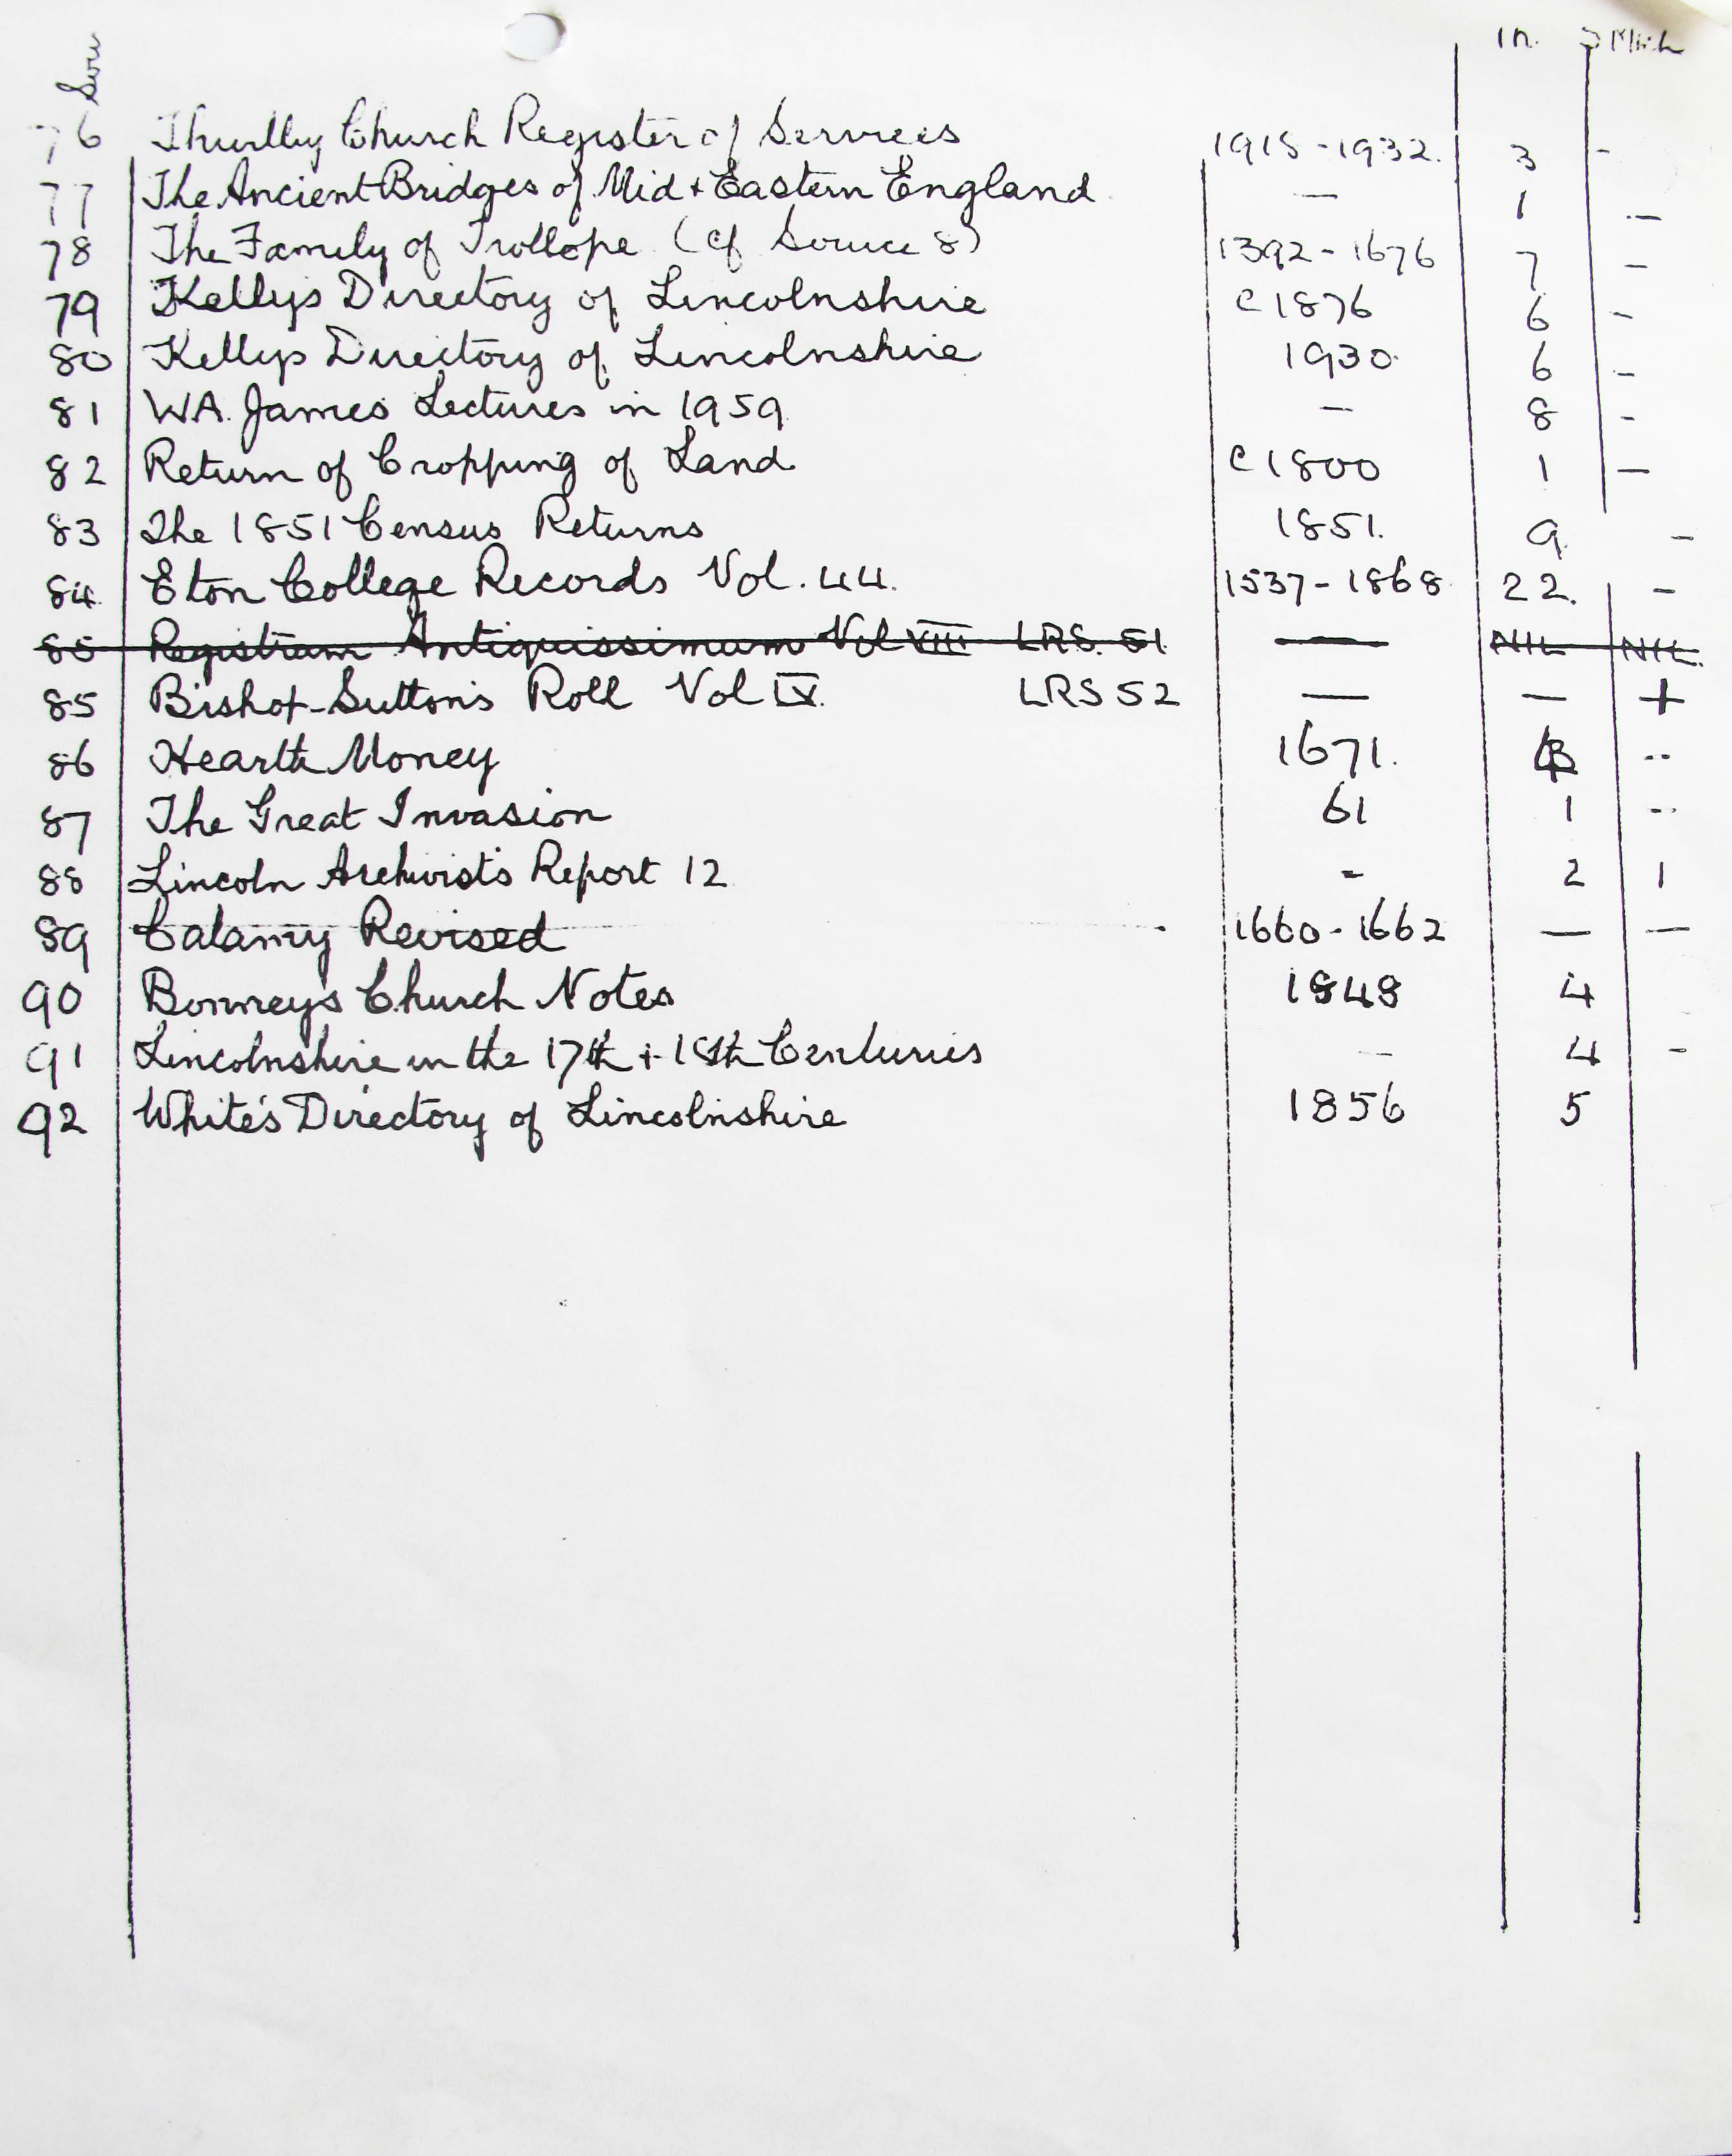 Sou In.
76 Thurlby Church Register of Services 1915-1932. 3 -
77 The Ancient Bridges of Mid + Eastern England — 1 —
78 The Family of Trollope (cf Source 8) 1392-1676 7 –
79 Kellys Directory of Lincolnshire C1876 6 -
80 Kellys Directory of Lincolnshire 1930. 6 -
81 WA. James Lectures in 1959. — 8 -
82 Return of Cropping of Land C1800 1 —
83 The 1851 Census Returns 1851. 9. –
84. Eton College Records Vol. 44. 1537-1868. 22. -
85 Registrum Antiquissimum Vol VIII LRS. 51. — NIL NIL.
85 Bishop Sutton's Roll Vol IX. LRS 52 — — +
86 Hearth Money 1671. --
87 The Great Invasion 61 1 --
88 Lincoln Archivists Report 12 - 2 1
89 Calamy Revised 1660-1662 — —
90 Bonneys Church Notes 1848 4
91 Lincolnshire in the 17th + 18th Centuries — 4 -
92 White's Directory of Lincolnshire 1856 5